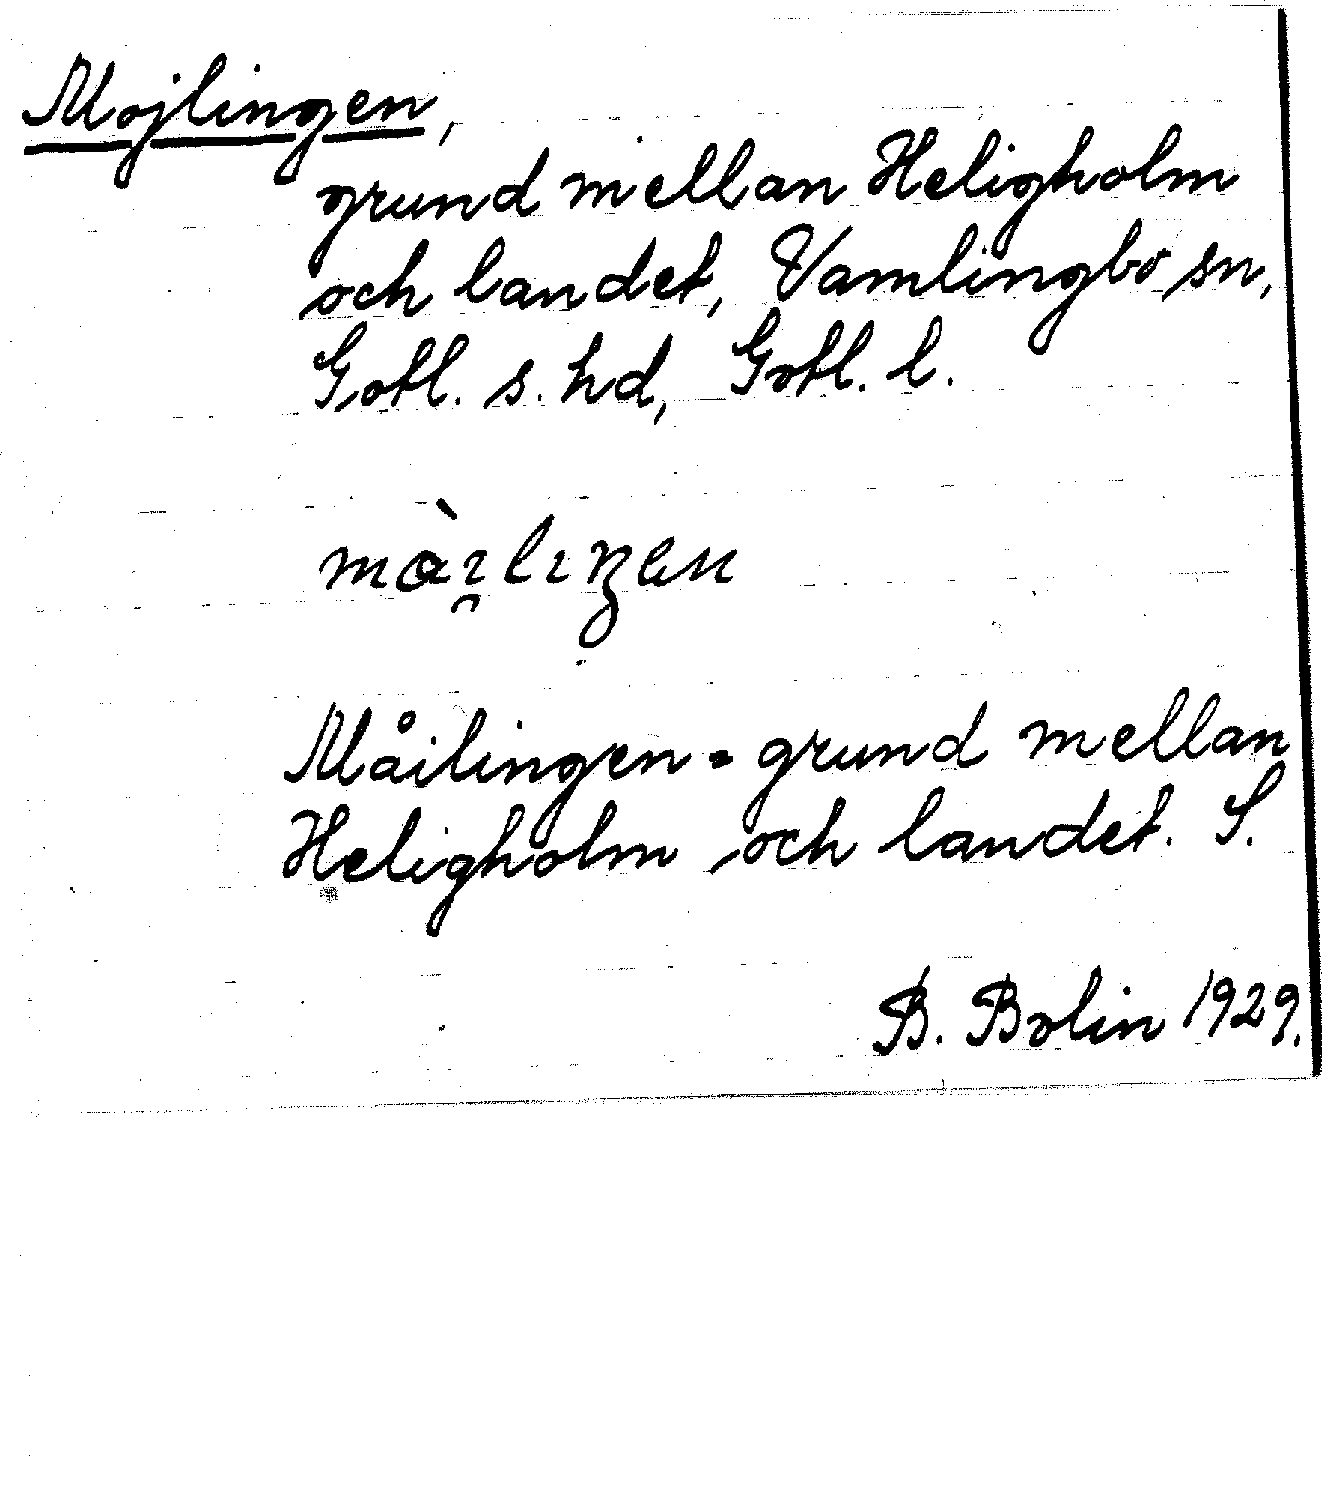 Mojlingen,
grund mellan Heligholm
och landet, Vamlingbo sn,
Gotl. s. hd, Gotl. l.
Måilingen = grund mellan
Heligholm och landet. S.
B. Bolin 1929.